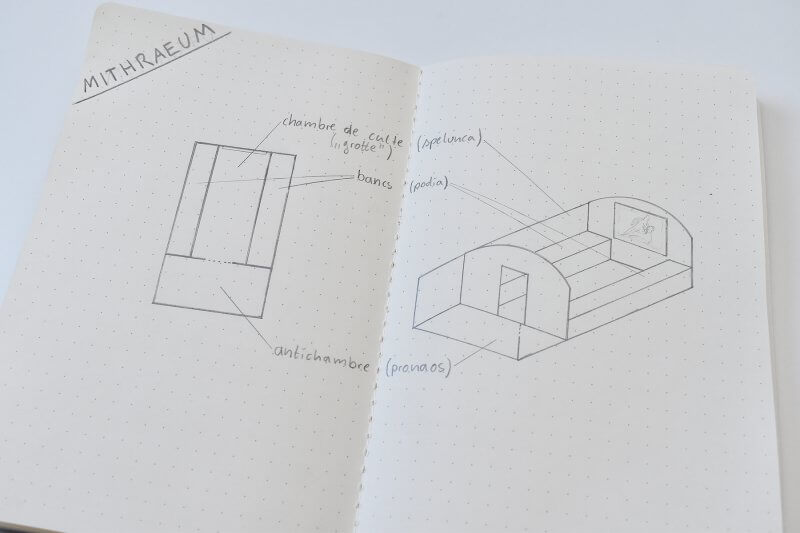 MITHRAEUM
chambre de culte (spelunca)
("grotte")
bancs (podia)
antichambre (pronaos)